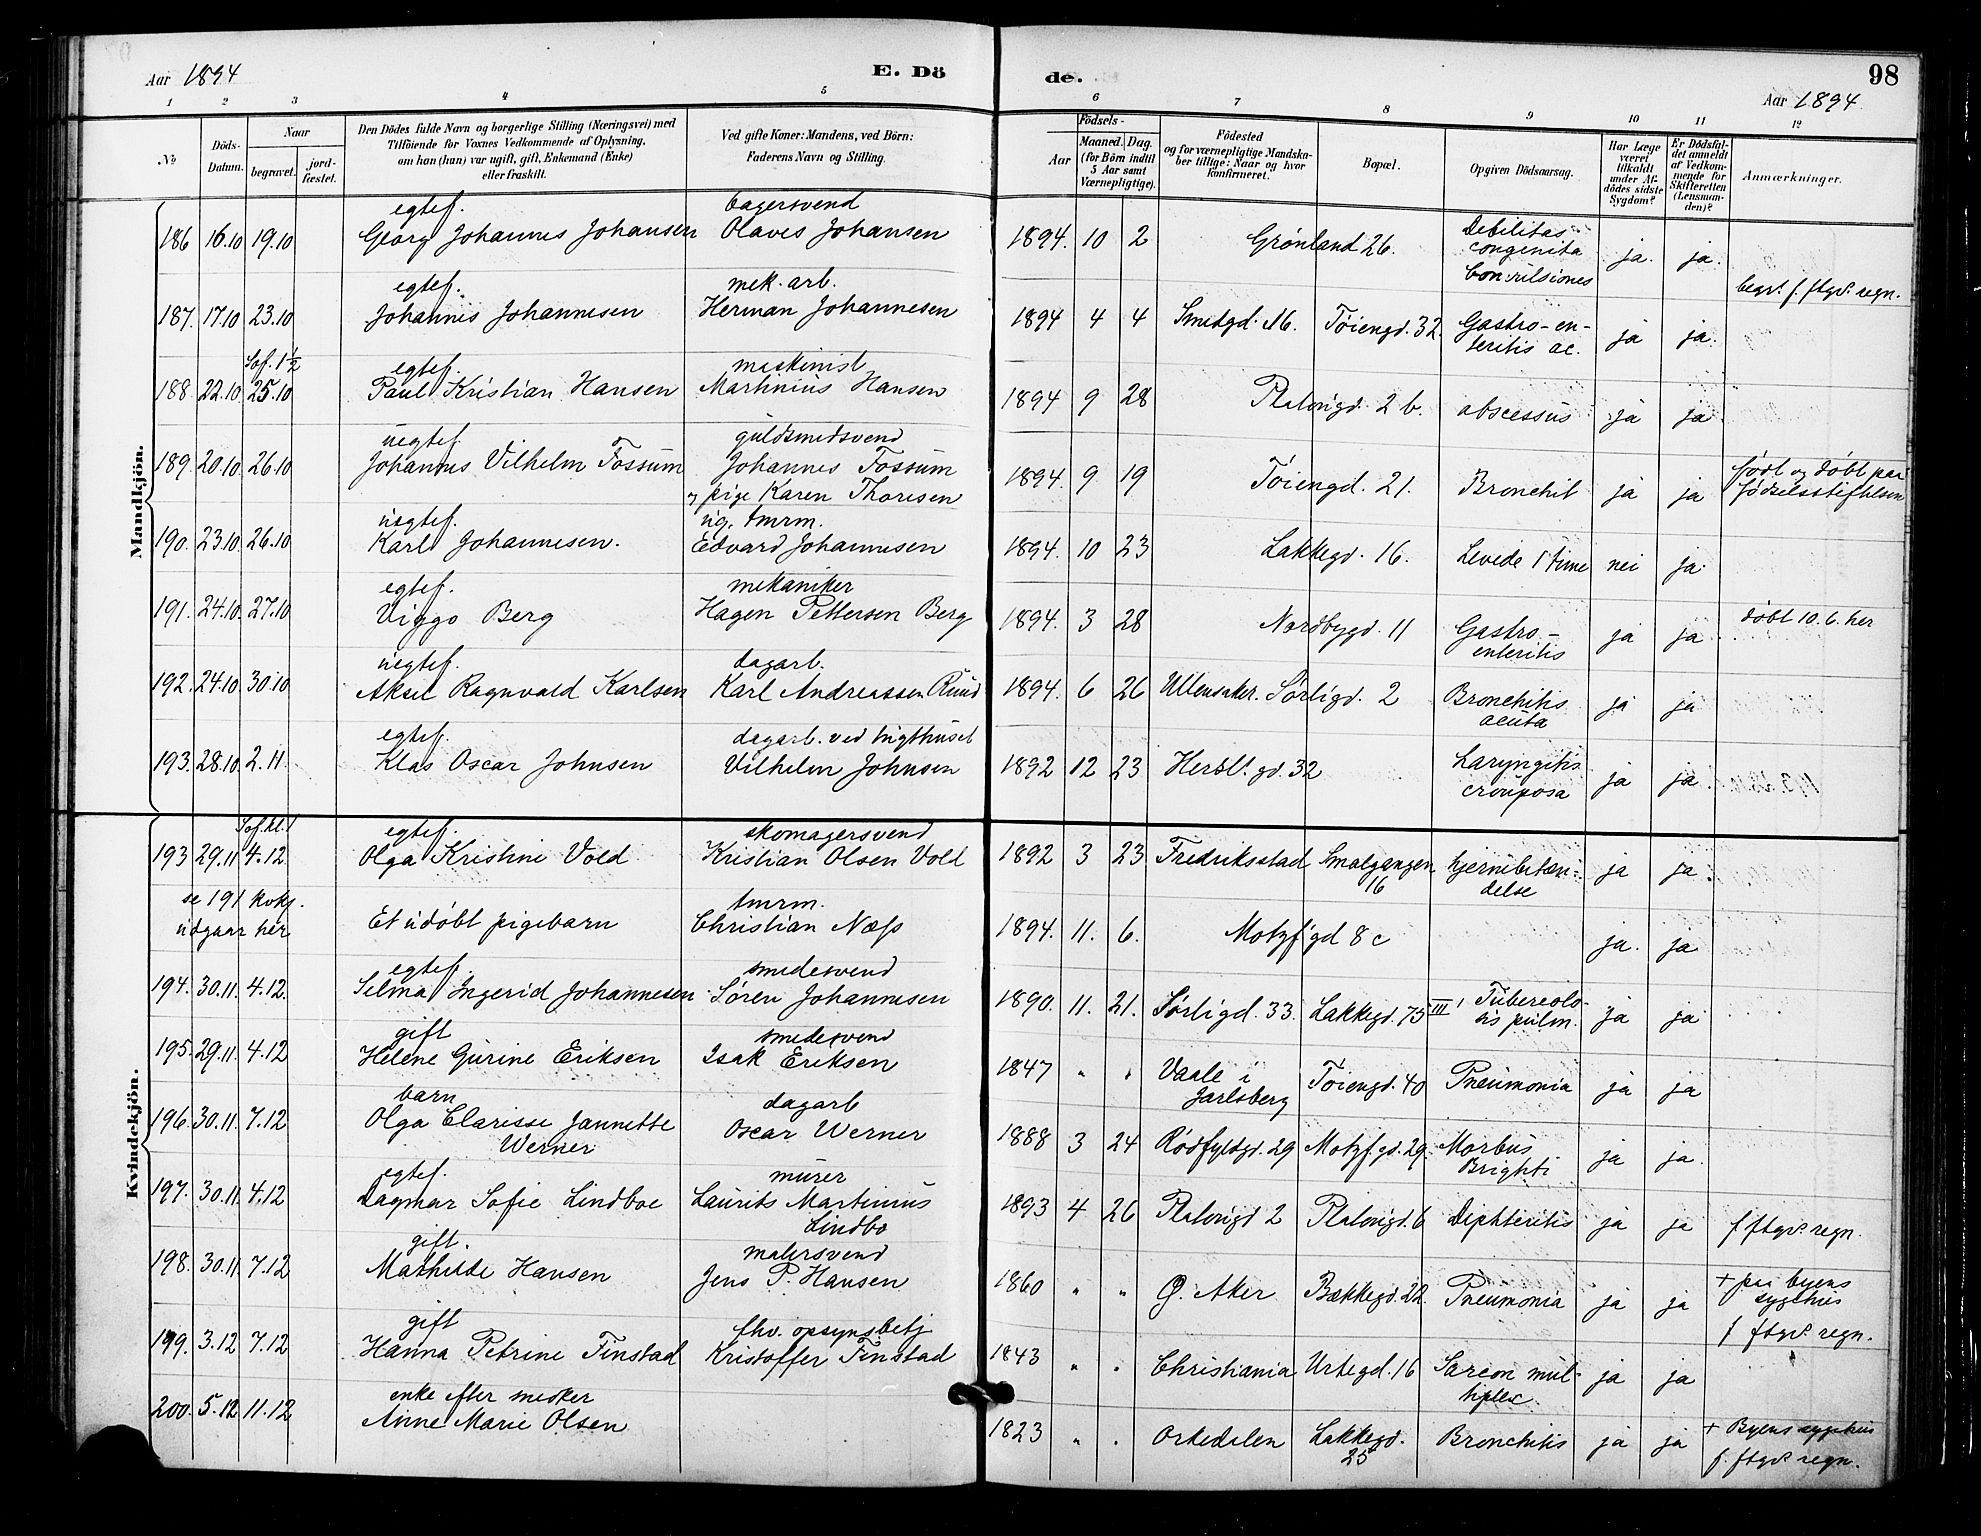 Aar 1894
E. Dö
de.
98
Aar 1894.
1 2 3 4 5 6 7 8 9 10 11 12
№
Döds-Datum.
Naar
begravet.
jord-fæstet.
Den Dödes fulde Navn og borgerlige Stilling (Næringsvei) med
Tilföiende for Voxnes Vedkommende af Oplysning,
om han (hun) var ugift, gift, Enkemand (Enke)
eller fraskilt.
Ved gifte Koner: Mandens, ved Börn:
Faderens Navn og Stilling.
Födsels-
Aar
Maaned. Dag.
(for Börn indtil
5 Aar samt
Værnepligtige).
Födested
og for værnepligtige Mandska-
ber tillige: Naar og hvor
konfirmeret.
Bopæl.
Opgiven Dödsaarsag.
Har Læge
været
tilkaldt
under Af-
dödes sidste
Sygdom?
Er Dödsfal-
det anmeldt
af Vedkom-
mende for
Skifteretten
(Lensman-
den)?
Anmærkninger.
Mandkjön.
egtef. bagersvend
186 16.10 19.10 Georg Johannes Johansen Olaves Johansen 1894. 10 2 Grønland 26. Debilitas congenita Convulsiones ja. ja.
egtef. mek. arb.
187. 17.10 23.10 Johannes Johannesen Herman Johannesen 1894 4 4 Smedgd. 16. Tøiengd. 32 Gastro-en-teritis ac. ja ja. begr. f. ftgv. regn.
Sof. 1½ egtef. maskinist
188 22.10 25.10 Paul Kristian Hansen Martinius Hansen 1894 9 28 Platougd. 2 b. abscessus ja ja
uegtef. guldsmedsvend
189. 20.10. 26.10 Johannes Vilhelm Fossum Johannes Fossum og pige Karen Thoresen 1894. 9 19 Tøiengd. 21. Bronchit ja ja født og døbt paa fødselsstiftelsen
uegtef. ug. tmrm.
190. 23.10. 26.10 Karl Johannesen. Edvard Johannesen 1894. 10 23 Lakkegd. 16. Levede 1 time nei ja.
egtef. mekaniker
191. 24.10. 27.10 Viggo Berg Hagen Pettersen Berg 1894. 3 28 Nordbygd. 11 Gastro-enteritis ja ja døbt 10.6. her
uegtef. dagarb.
192. 24.10. 30.10 Aksel Ragnvald Karlsen Karl Andreassen Ruud 1894. 6 26 Ullensaker. Sørligd. 2 Bronchitis acuta ja ja
egtef. dagarb. ved tugthuset
193. 28.10. 2.11. Klas Oscar Johnsen Vilhelm Johnsen 1892 12 23 Hersl. gd. 32 Laryngitis crouposa ja ja
Kvindekjön.
Sof. kl. 1 egtef. skomagersvend
193 29.11 4.12 Olga Kristine Vold Kristian Olsen Vold 1892 3 23 Fredriksstad Smalgangen 16 hjernebetæn-delse ja ja.
se 191 kvkj. udgaar her Et udøbt pigebarn tmrm. Christian Næss 1894. 11. 6. Motzf gd 8 c ja. ja
egtef. smedesvend
194. 30.11. 4.12. Selma Ingerid Johannesen Søren Johannesen 1890. 11. 21. Sørligd. 33. Lakkegd. 75 III Tuberculo-sis pulm. ja ja
gift smedesvend
195. 29.11. 4.12 Helene Gurine Eriksen Isak Eriksen 1847 " " Vaale i Jarlsberg Tøiengd. 40 Pneumonia ja ja
barn dagarb
196. 30.11. 7.12 Olga Clarisse Jannette Werner Oscar Werner 1888 3 24 Rødfyldgd. 29 Motzf. gd. 29. Morbus Brighti ja ja.
egtef. murer
197. 30.11 4.12 Dagmar Sofie Lindboe Laurits Martinius Lindbo 1893 4 26 Platougd 2 Platougd. 6 Diphteritis ja ja f ftgv. regn.
gift. malersvend
198. 30.11 7.12 Mathilde Hansen Jens P. Hansen 1860 " " Ø. Aker Bækkegd. 22. Pneumonia ja ja + paa byens sygehus f ftgv. regn.
gift fhv. opsynsbetj
199. 3.12 7.12 Hanna Petrine Finstad Kristoffer Finstad 1843 " " Christiania Urtegd. 16 Sarcom mul-tiplex. ja ja
enke efter snedker
200. 5.12 11.12 Anne Marie Olsen 1823 " " Orkedalen Lakkegd. 25 Bronchitis ja ja + Byens sygehus f. ftgv. regn.